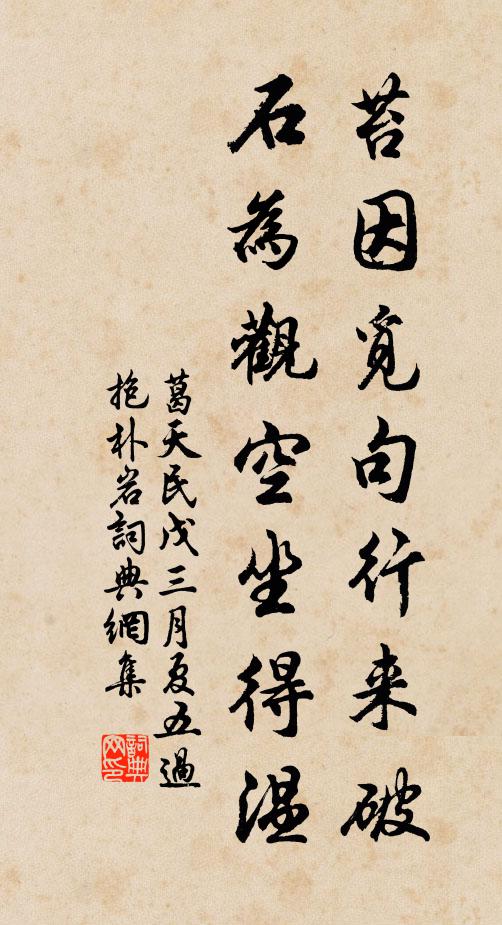 苔因覓句行来破
石為觀空坐得温
葛天民戊三月夏五過
抱朴岩詞典網集
詞典网印